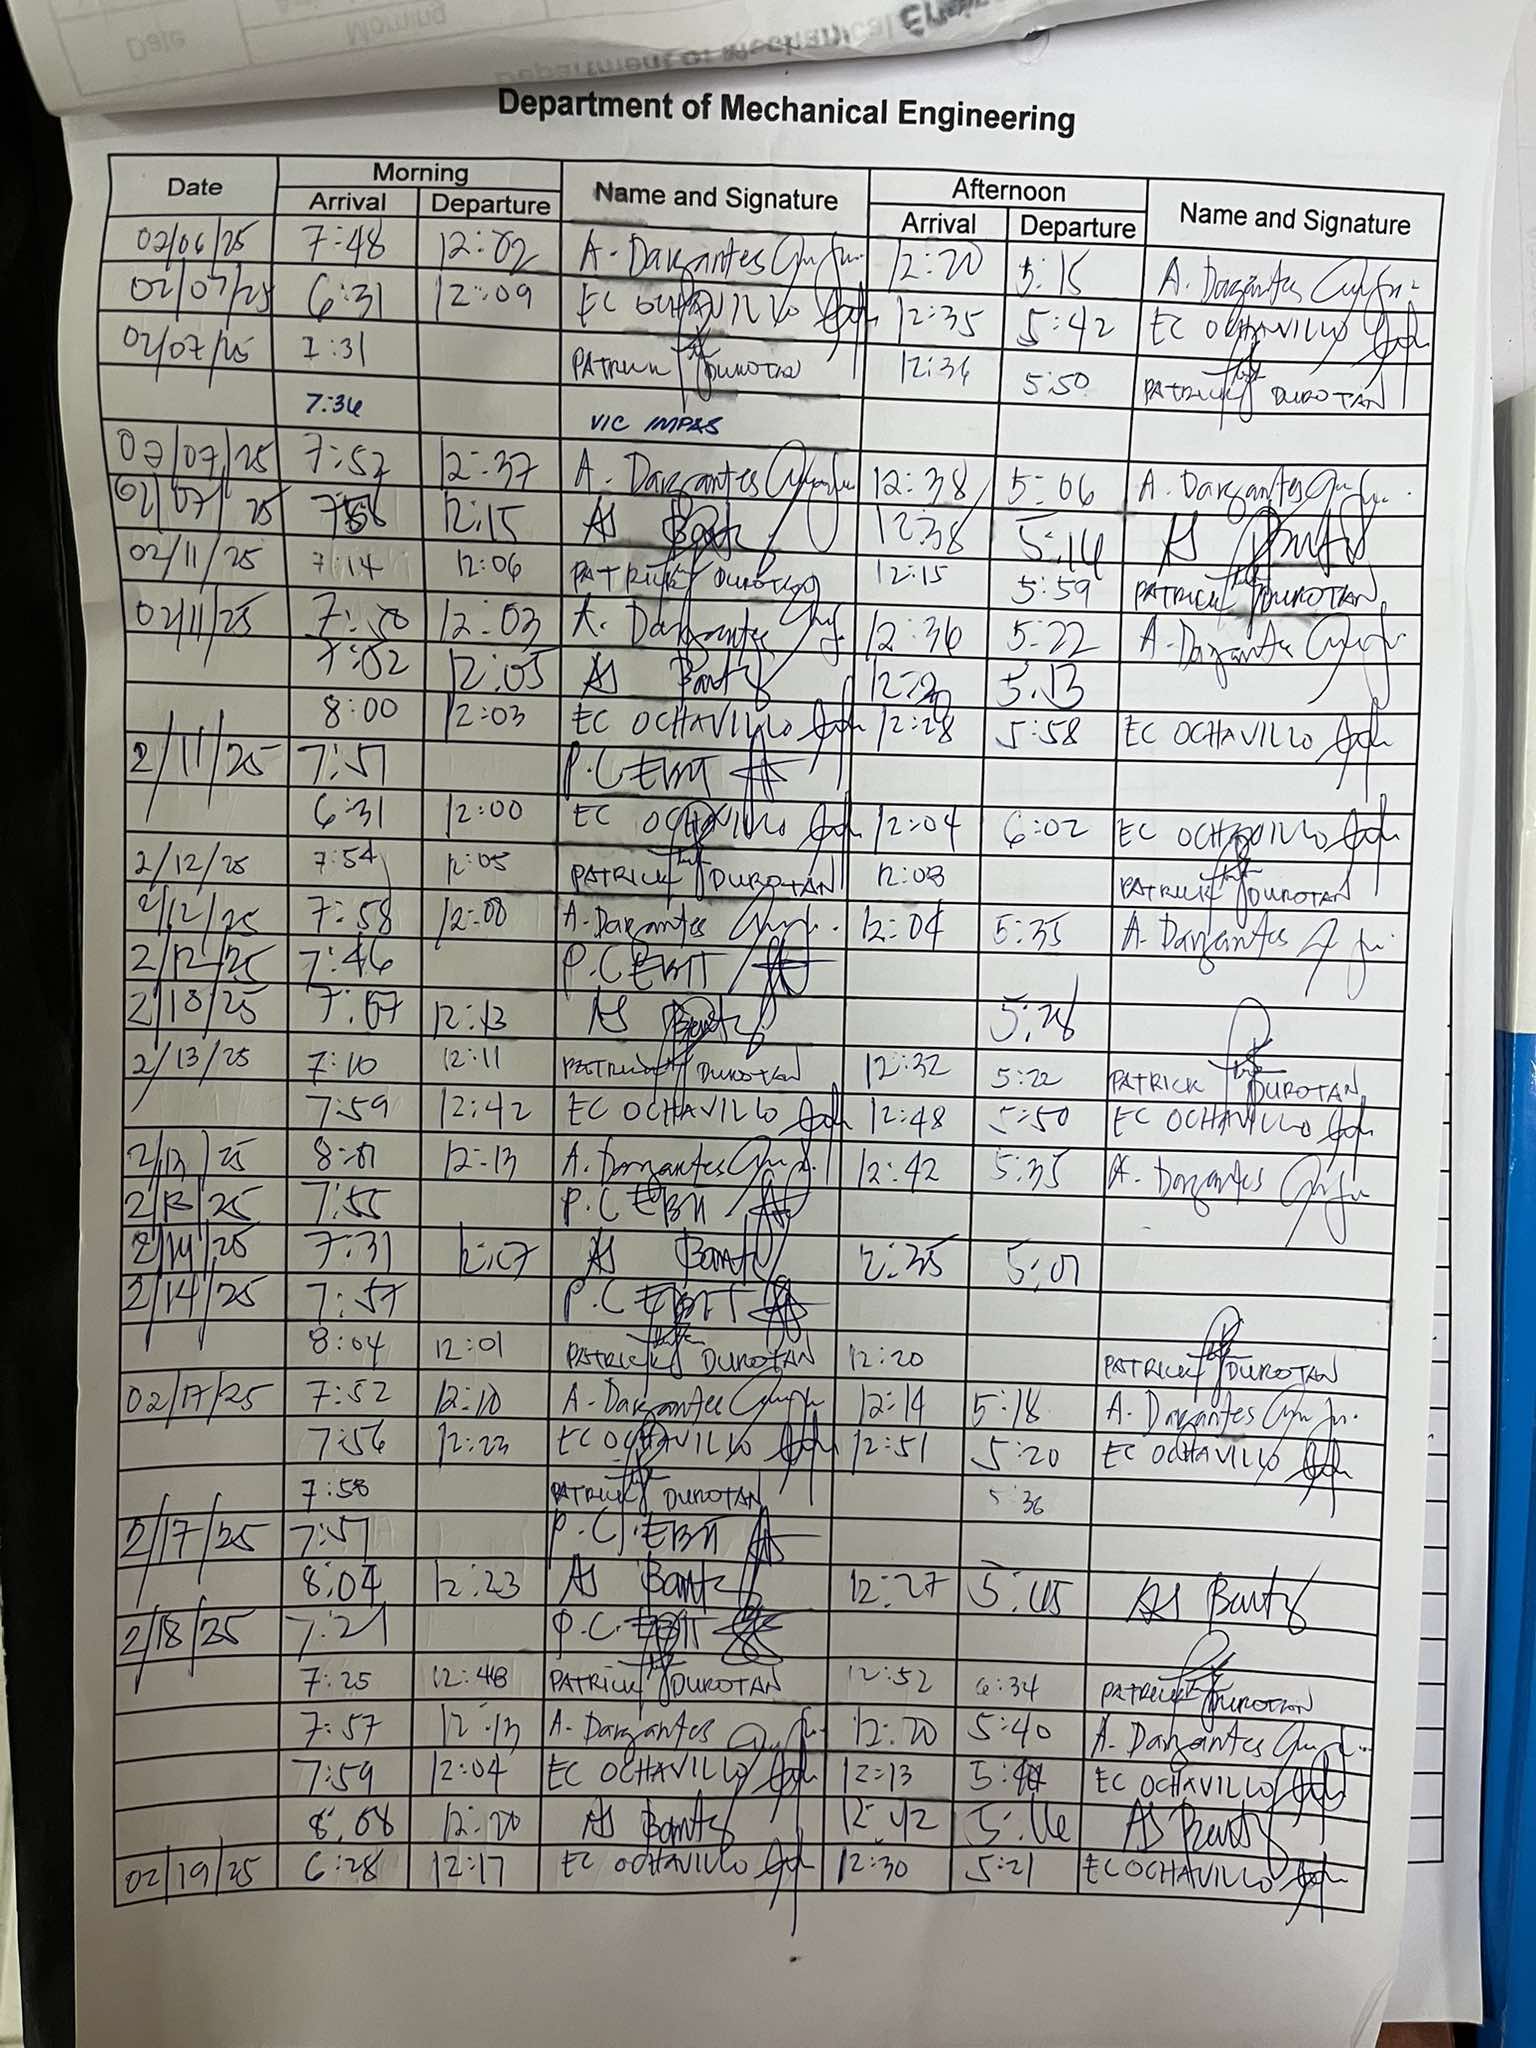 Department of Mechanical Engineering
Date Morning Name and Signature Afternoon Name and Signature
Arrival Departure Arrival Departure
02/06/25 7:48 12:02 A. Dargantes 12:20 5:15 A. Dargantes
02/07/25 6:31 12:09 EC OCHAVILLO 12:35 5:42 EC OCHAVILLO
02/07/25 7:31 PATRICK DUROTAN 12:36 5:50 PATRICK DUROTAN
7:36 VIC IMPAS
02/07/25 7:52 12:37 A. Dargantes 12:38 5:06 A. Dargantes
02/07/25 12:15 12:38 5:14
02/11/25 7:14 12:06 PATRICK DUROTAN 12:15 5:59 PATRICK DUROTAN
02/11/25 7:50 12:03 A. Dargantes 12:36 5:22 A. Dargantes
7:52 12:05 5:13
8:00 12:03 EC OCHAVILLO 12:28 5:58 EC OCHAVILLO
2/11/25 7:51 P.C EBIT
6:31 12:00 EC OCHAVILLO 12:04 6:02 EC OCHAVILLO
2/12/25 7:54 12:05 PATRICK DUROTAN 12:08 PATRICK DUROTAN
2/12/25 7:58 12:00 A. Dargantes 12:04 5:35 A. Dargantes
2/12/25 7:46 P.C EBIT
2/13/25 12:13 5:28
2/13/25 7:10 12:11 PATRICK DUROTAN 12:32 5:22 PATRICK DUROTAN
7:59 12:42 EC OCHAVILLO 12:48 5:50 EC OCHAVILLO
2/13/25 8:01 12:13 A. Dargantes 12:42 5:35 A. Dargantes
2/13/25 7:55 P.C EBIT
2/14/25 7:31 12:07 12:35 5:01
2/14/25 7:57 P.C EBIT
8:04 12:01 PATRICK DUROTAN 12:20 PATRICK DUROTAN
02/17/25 7:52 12:10 A. Dargantes 12:14 5:18 A. Dargantes
7:56 12:23 EC OCHAVILLO 12:51 5:20 EC OCHAVILLO
7:58 PATRICK DUROTAN 5:36
2/17/25 7:51 P.C. EBIT
8:04 12:23 12:27 5:05
2/18/25 7:21 P.C. EBIT
7:25 12:48 PATRICK DUROTAN 12:52 6:34 PATRICK DUROTAN
7:57 12:13 A. Dargantes 12:20 5:40 A. Dargantes
7:59 12:04 EC OCHAVILLO 12:13 EC OCHAVILLO
8:08 12:20 12:42 5:16
02/19/25 6:28 12:17 EC OCHAVILLO 12:30 5:21 EC OCHAVILLO